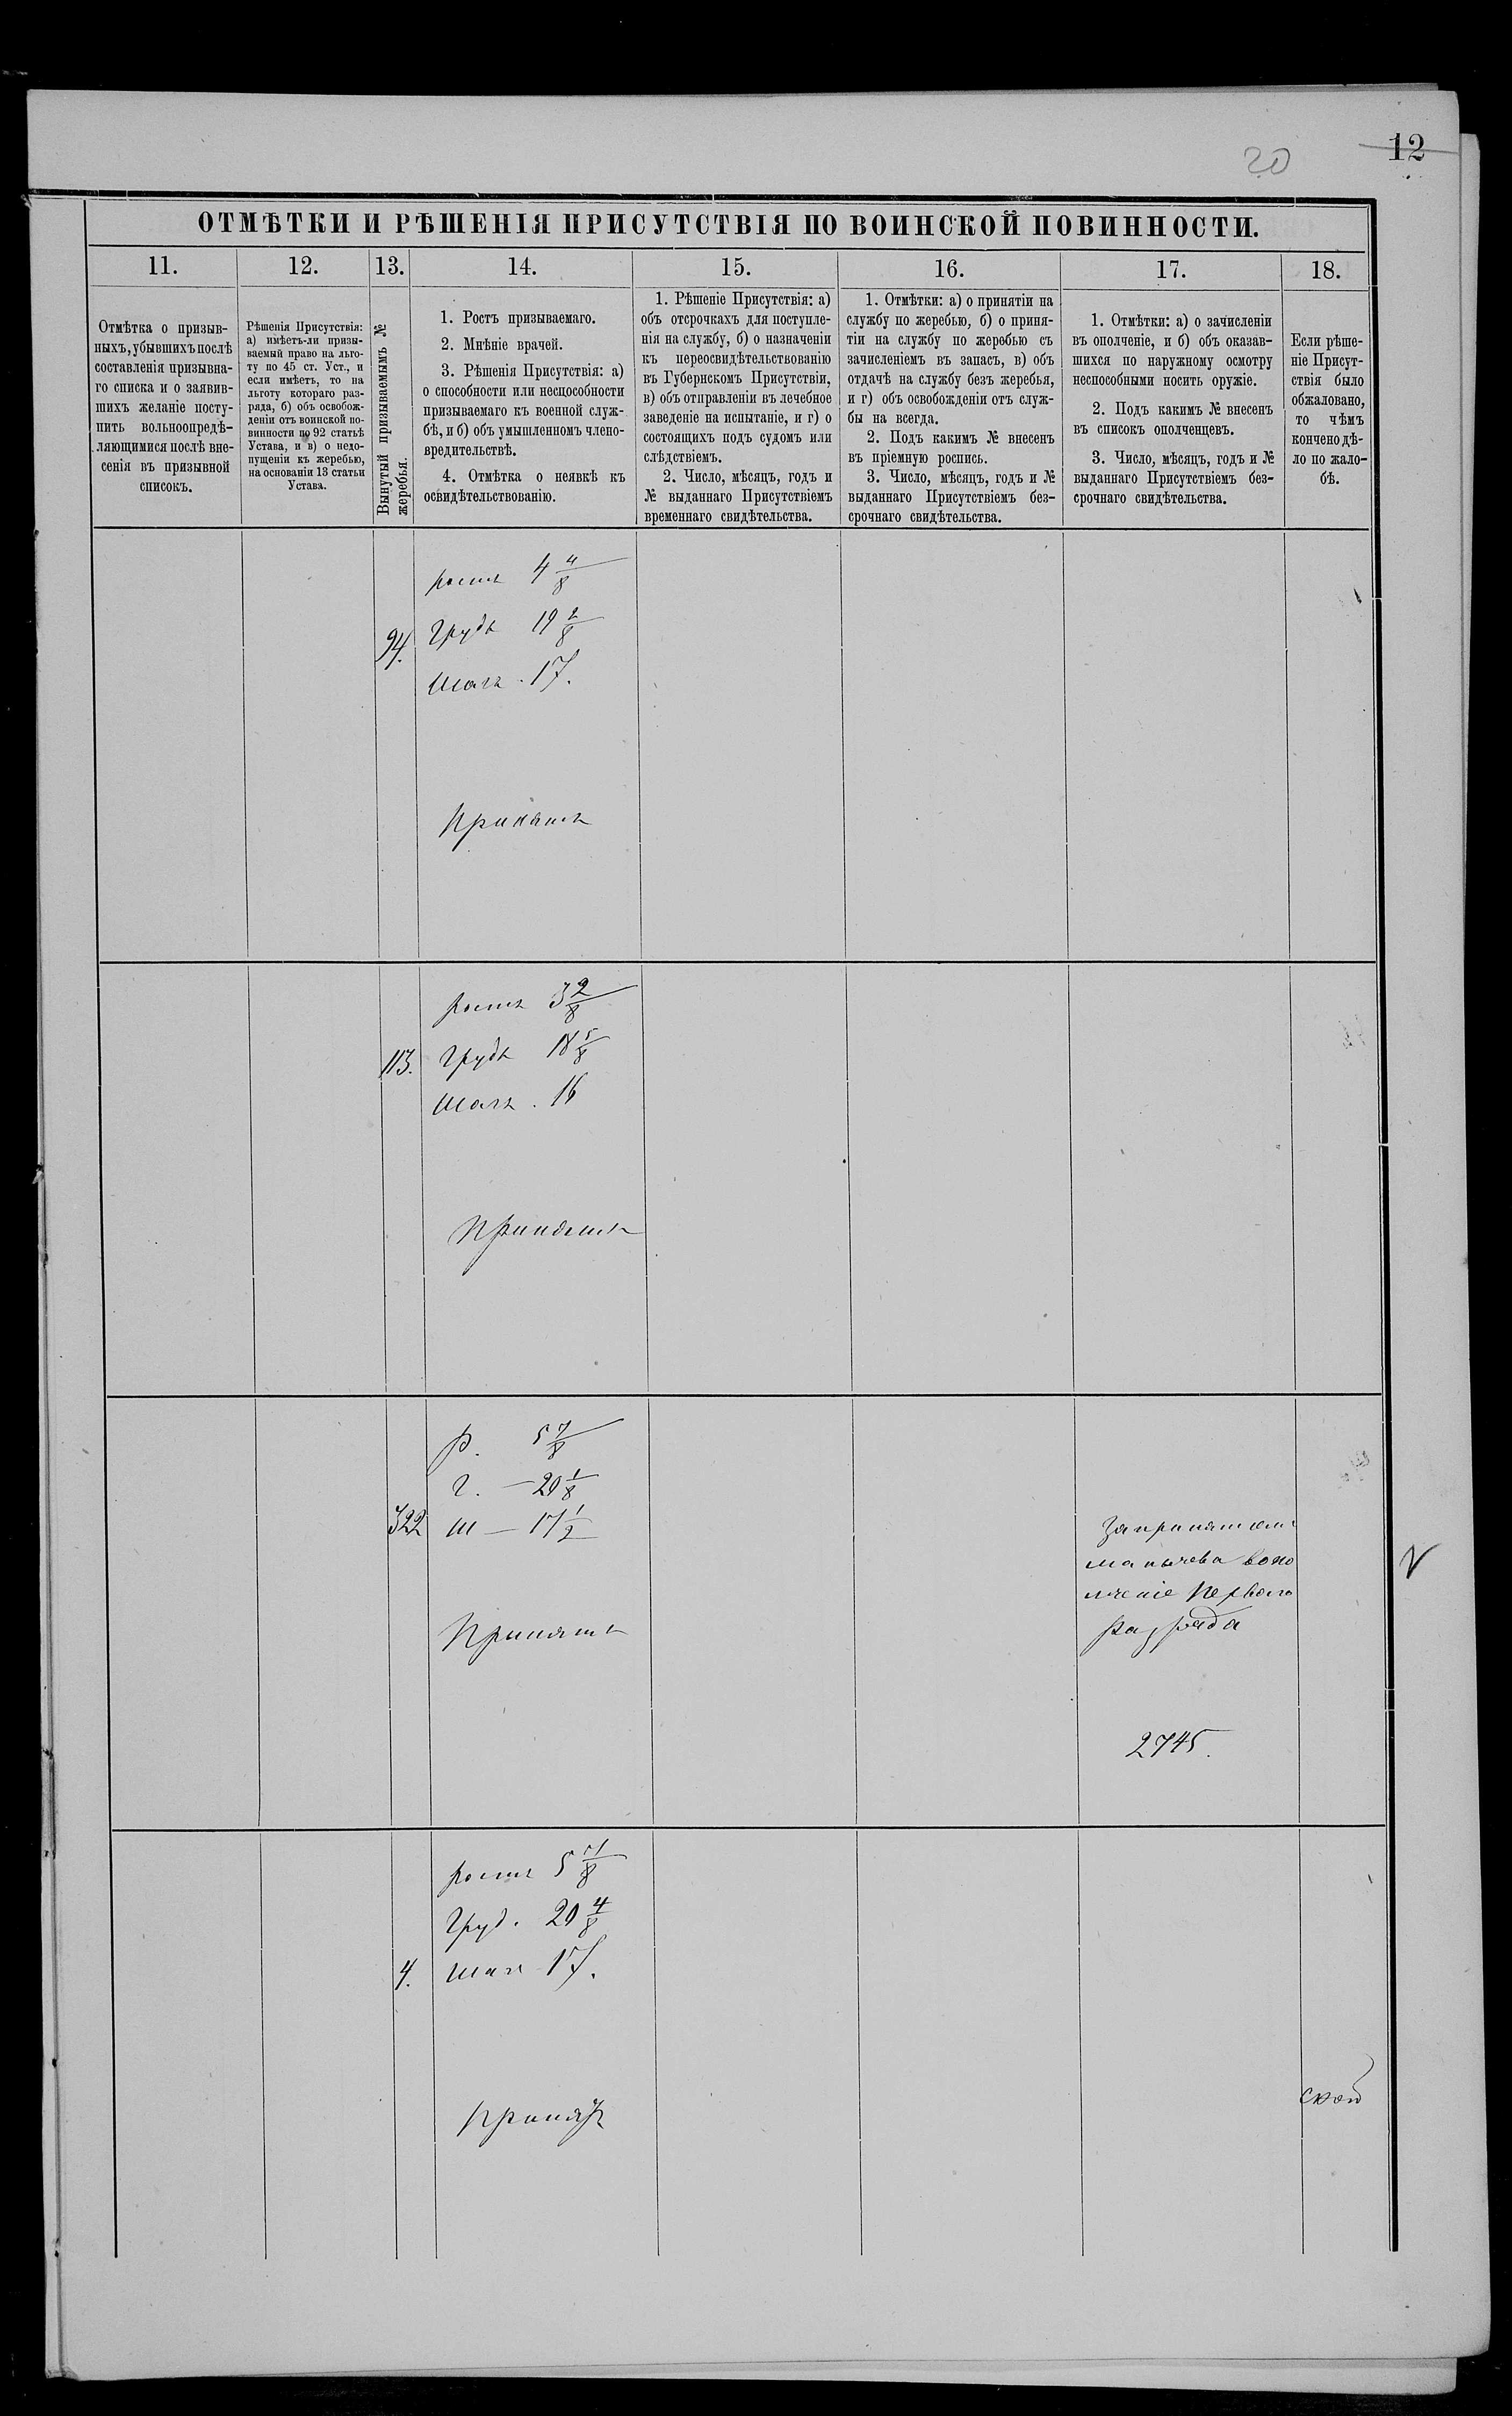 20
12
ОТМѢТКИ И РѢШЕНІЯ ПРИСУТСТВІЯ ПО ВОИНСКОЙ ПОВИННОСТИ.
11.
12.
13.
14.
15.
16.
17.
18.
Отмѣтка о призыв-
ныхъ, убывшихъ послѣ
составленія призывна-
го списка и о заявив-
шихъ желаніе посту-
пить вольноопредѣ-
ляющимися послѣ вне-
сенія въ призывной
списокъ.
Рѣшенія Присутствія:
а) имѣетъ-ли призы-
ваемый право на льго-
ту по 45 ст. Уст., и
если имѣетъ, то на
льготу котораго раз-
ряда, б) объ освобож-
деніи отъ воинской по-
винности по 92 статьѣ
Устава, и в) о недо-
пущеніи къ жеребью,
на основаніи 13 статьи
Устава.
Вынутый призываемымъ №
жеребья.
1. Ростъ призываемаго.
2. Мнѣніе врачей.
3. Рѣшенія Присутствія: а)
о способности или неспособности
призываемаго къ военной служ-
бѣ, и б) объ умышленномъ члено-
вредительствѣ.
4. Отмѣтка о неявкѣ къ
освидѣтельствованію.
1. Рѣшеніе Присутствія: а)
объ отсрочкахъ для поступле-
нія на службу, б) о назначеніи
къ переосвидѣтельствованію
въ Губернскомъ Присутствіи,
в) объ отправленіи въ лечебное
заведеніе на испытаніе, и г) о
состоящихъ подъ судомъ или
слѣдствіемъ.
2. Число, мѣсяцъ, годъ и
№ выданнаго Присутствіемъ
временнаго свидѣтельства.
1. Отмѣтки: а) о принятіи на
службу по жеребью, б) о приня-
тіи на службу по жеребью съ
зачисленіемъ въ запасъ, в) объ
отдачѣ на службу безъ жеребья,
и г) объ освобожденіи отъ служ-
бы на всегда.
2. Подъ какимъ № внесенъ
въ пріемную роспись.
3. Число, мѣсяцъ, годъ и №
выданнаго Присутствіемъ без-
срочнаго свидѣтельства.
1. Отмѣтки: а) о зачисленіи
въ ополченіе, и б) объ оказав-
шихся по наружному осмотру
неспособными носить оружіе.
2. Подъ какимъ № внесенъ
въ списокъ ополченцевъ.
3. Число, мѣсяцъ, годъ и №
выданнаго Присутствіемъ без-
срочнаго свидѣтельства.
Если рѣше-
ніе Присут-
ствія было
обжаловано,
то чѣмъ
кончено дѣ-
ло по жало-
бѣ.
94.
ростъ 4 4/8
грудь 19 2/8
шагъ . 17.
Принятъ
113.
ростъ 3 2/8
грудь 18 5/8
шагъ . 16
Принятъ
322
Р. 5 7/8
Г. — 20 1/8
Ш — 17 1/2
Принятъ
разряда
2745.
4.
ростъ
Груд. 20 4/8
шаг 17.
Принятъ
ской